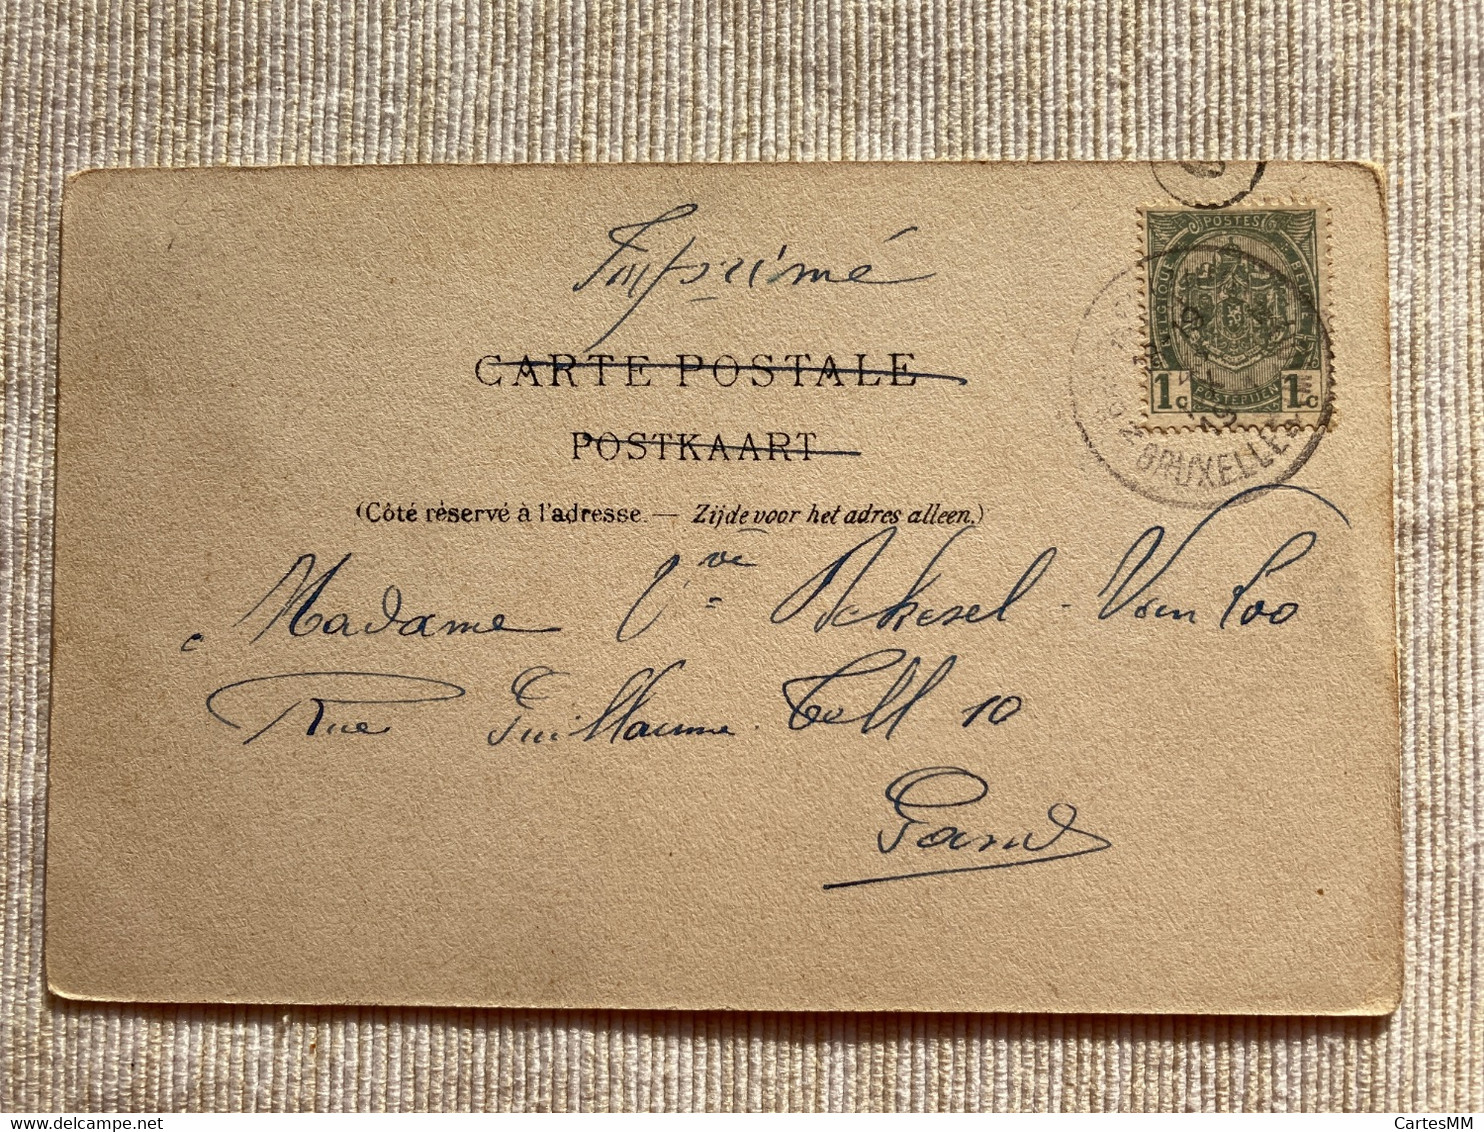 Imprimé
POSTES
CARTE POSTALE
1c 1c
POSTERIJEN
POSTKAART
BRUXELLES
(Côté réservé à l'adresse. — Zijde voor het adres alleen.)
Madame Vve Van Loo
Rue Guillaume Tell 10
Gand
CartesMM